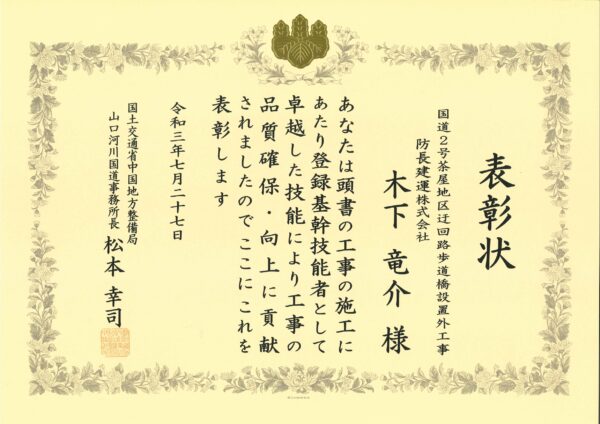 表彰状
国道2号茶屋地区迂回路歩道橋設置外工事
防長建運株式会社
木下 竜介 様
あなたは頭書の工事の施工に
あたり登録基幹技能者として
卓越した技能により工事の
品質確保・向上に貢献
されましたのでここにこれを
表彰します
令和三年七月二十七日
国土交通省中国地方整備局
山口河川国道事務所長 松本 幸司